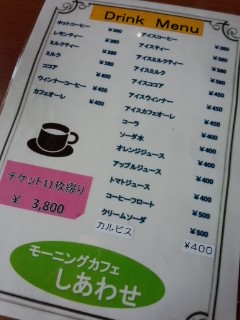 Drink Menu
ホットコーヒー ¥380
レモンティー ¥380
ミルクティー ¥380
ミルク ¥380
ココア ¥400
ウィンナーコーヒー ¥450
カフェオーレ ¥400
アイスコーヒー ¥380
アイスティー ¥380
アイスミルクティー ¥380
アイスミルク ¥380
アイスココア ¥400
アイスウィンナー ¥450
アイスカフェオーレ ¥400
コーラ ¥400
ソーダ水 ¥400
オレンジジュース ¥400
アップルジュース ¥400
トマトジュース ¥400
コーヒーフロート ¥500
クリームソーダ ¥500
カルピス ¥400
チケット11枚綴り
¥ 3,800
モーニングカフェ
しあわせ